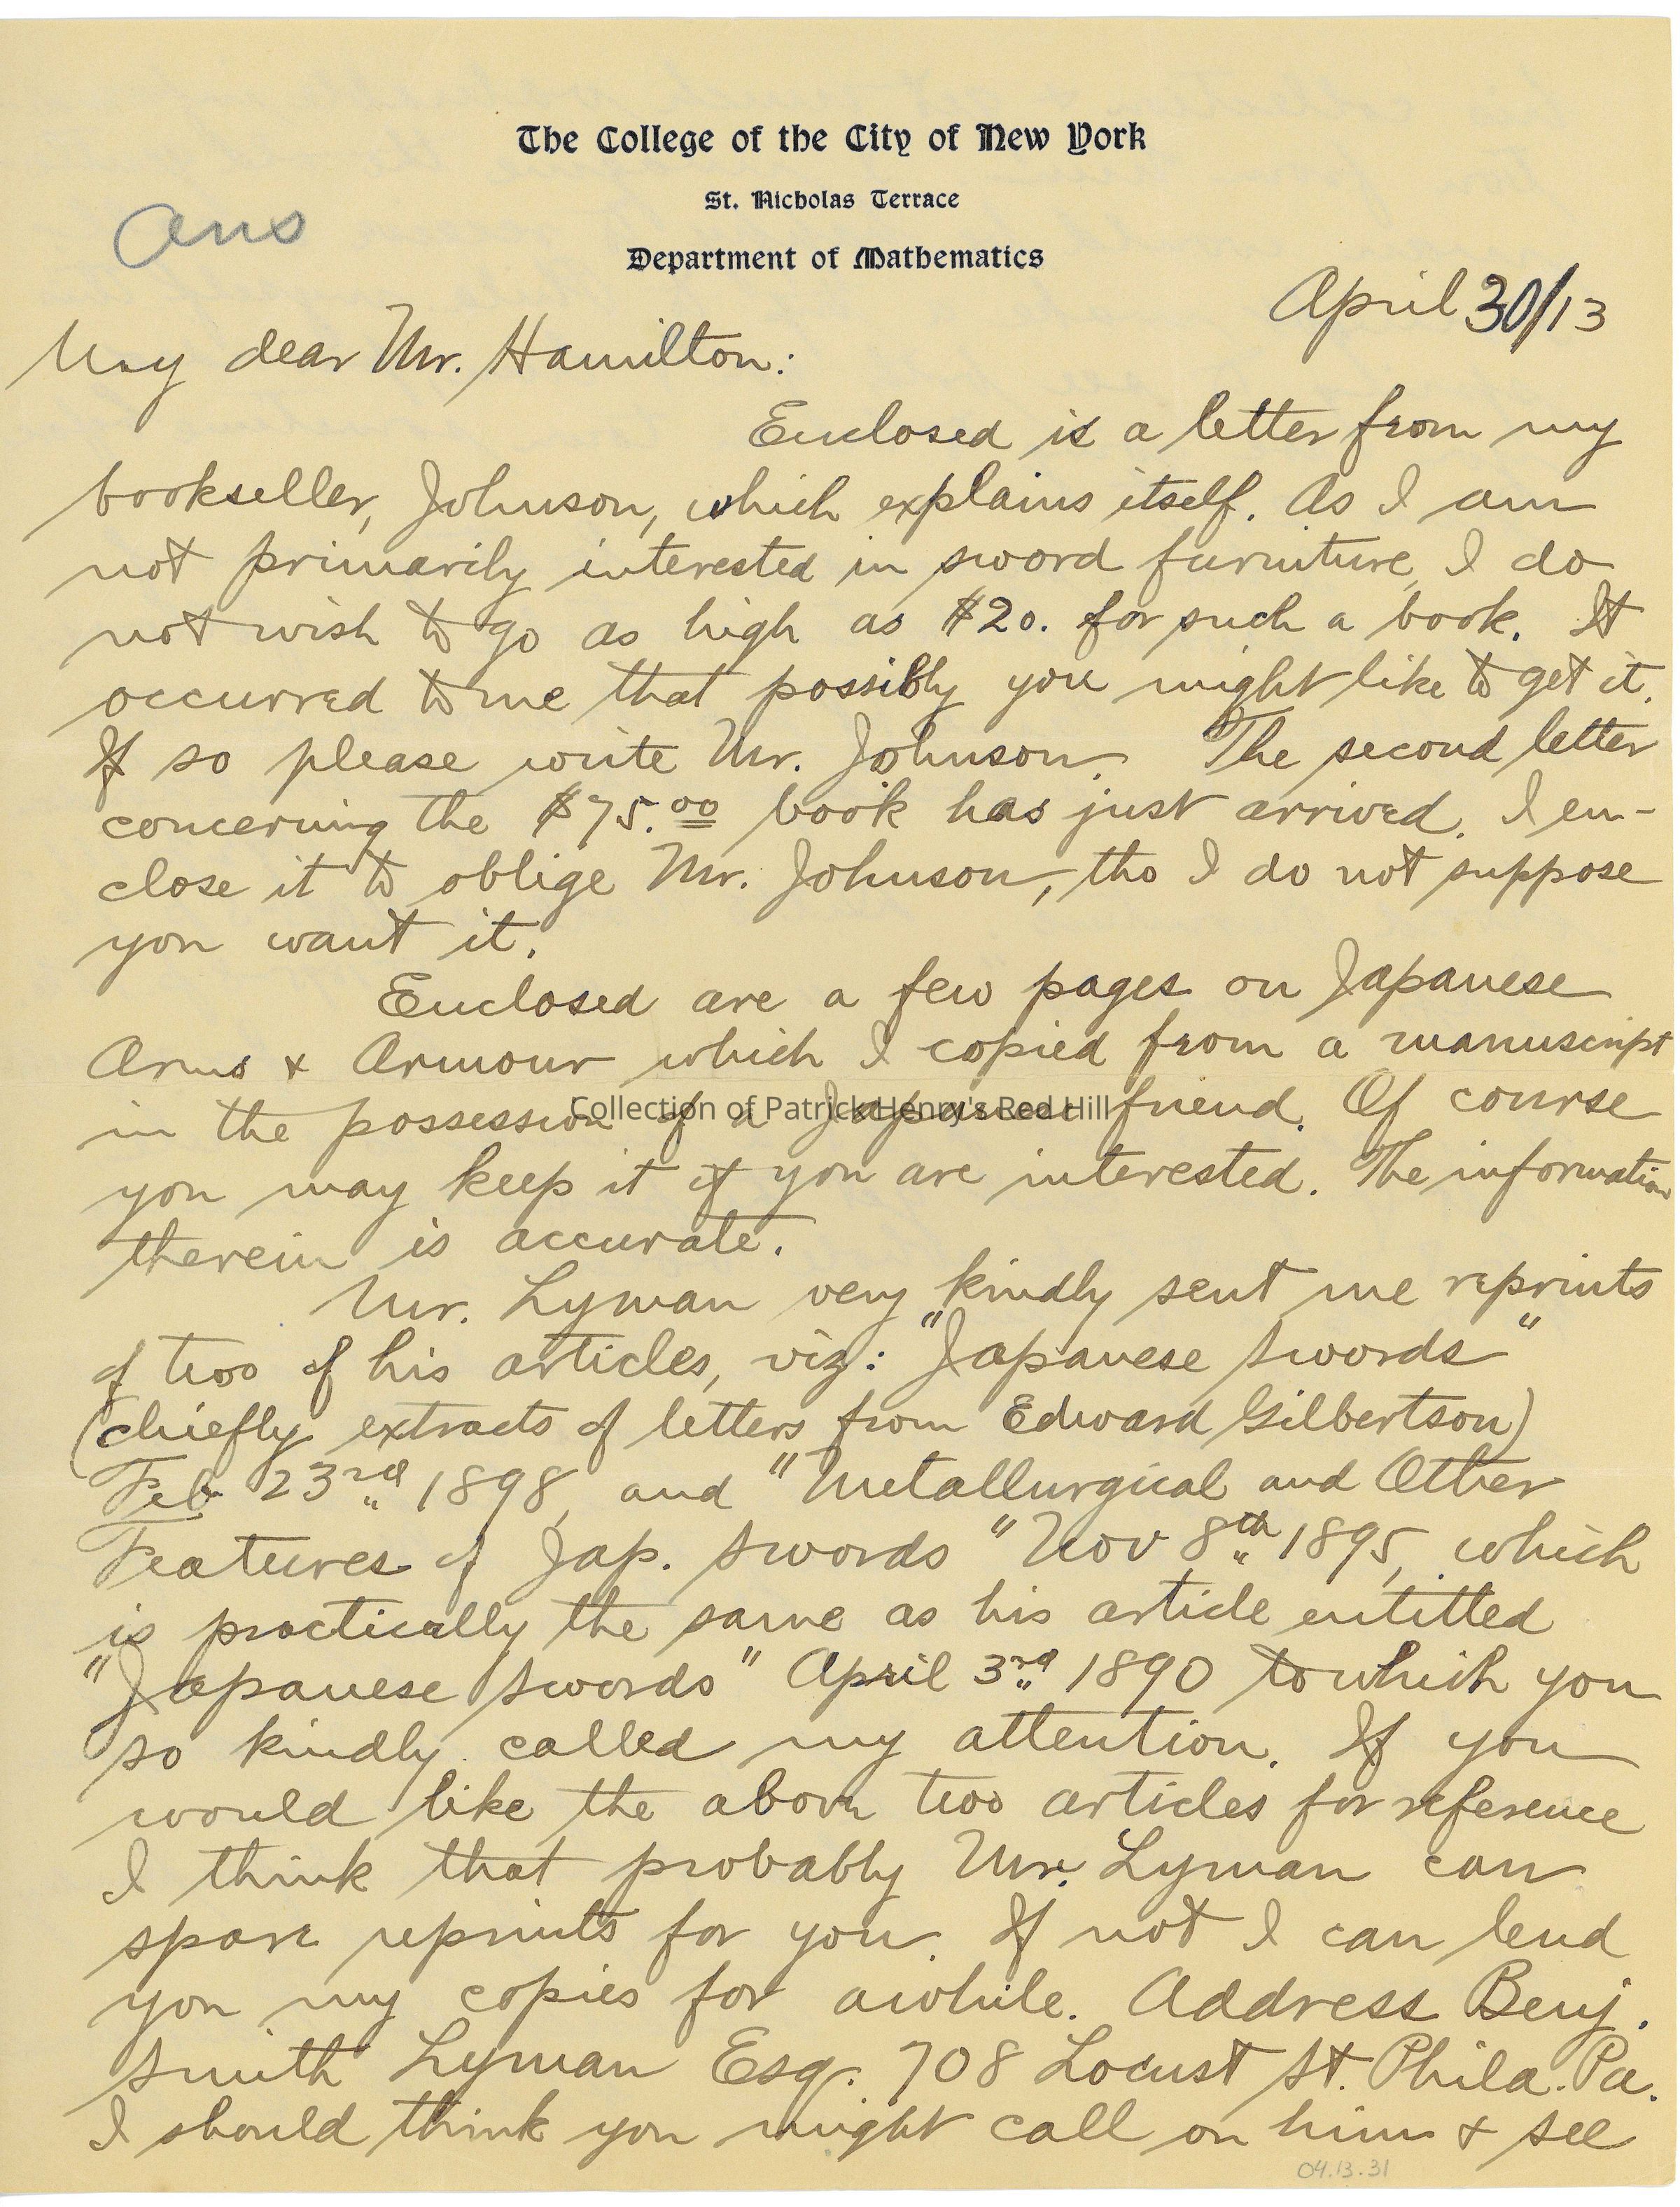 The College of the City of New York
St. Nicholas Terrace
Department of Mathematics
Ans
April 30/13
My dear Mr. Hamilton:
Enclosed is a letter from my
bookseller, Johnson, which explains itself. As I am
not primarily interested in sword furniture, I do
not wish to go as high as $20. for such a book. It
occurred to me that possibly you might like to get it.
If so please write Mr. Johnson. The second letter
concerning the $75.00 book has just arrived. I en-
close it to oblige Mr. Johnson, tho I do not suppose
you want it.
Enclosed are a few pages on Japanese
Arms & Armour which I copied from a manuscript
in the possession of a Japanese friend. Of course
Collection of Patrick Henry's Red Hill
you may keep it if you are interested. The information
therein is accurate.
Mr. Lyman very kindly sent me reprints
of two of his articles, viz: "Japanese Swords"
(chiefly extracts of letters from Edward Gilbertson)
Feb 23rd 1898, and "Metallurgical and Other
Features of Jap. Swords" Nov 8th 1895, which
is practically the same as his article entitled
"Japanese Swords" April 3rd 1890 to which you
so kindly called my attention. If you
would like the above two articles for reference
I think that probably Mr. Lyman can
spare reprints for you. If not I can lend
you my copies for awhile. Address Benj.
Smith Lyman Esq. 708 Locust St. Phila. Pa.
I should think you might call on him & see
04.13.31